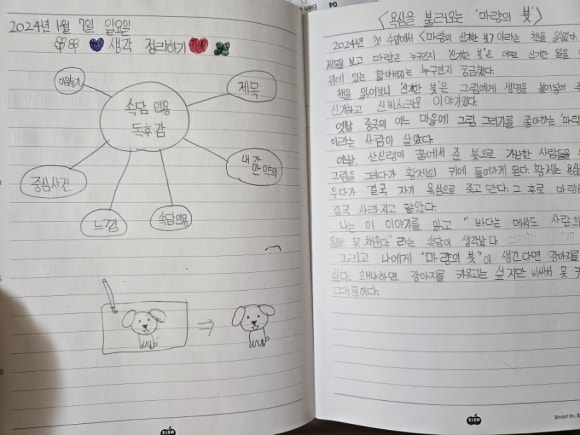 2024년 1월 7일 일요일
생각 정리하기
속담 인용
독후감
제목
중심사건
느낌
속담인용
<욕심을 불러오는 '마량의 붓'>
2024년 첫 수업에서 <마량의 신기한 붓>이라는 책을 읽었다.
제목을 보고 마량은 누구인지 신기한 붓은 어떤 신기한 일을
위에 있는 할아버지는 누구인지 궁금했다.
책을 읽어보니 신기한 붓은 그림에게 생명을 불어넣어
신기하고 신비스러운 이야기였다.
옛날 중국의 어느 마을에 그림 그리기를 좋아하는 '마량'
이라는 사람이 살았다.
어느날 산신령이 꿈에서 준 붓으로 가난한 사람들을
그림을 그리다가 황제의 귀에 들어가게 된다. 황제는 욕심
결국 자기 욕심으로 죽고 만다. 그 후로 마량은
결국 사라지고 말았다.
나는 이 이야기를 읽고 "바다는 메워도 사람의
욕심은 못 채운다"라는 속담이 생각났다.
그리고 나에게 "마량의 붓"이 생긴다면 강아지를
싶다. 왜냐하면 강아지를 키우고는 싶지만 비싸서 못
때문이다.
SISO
SISO